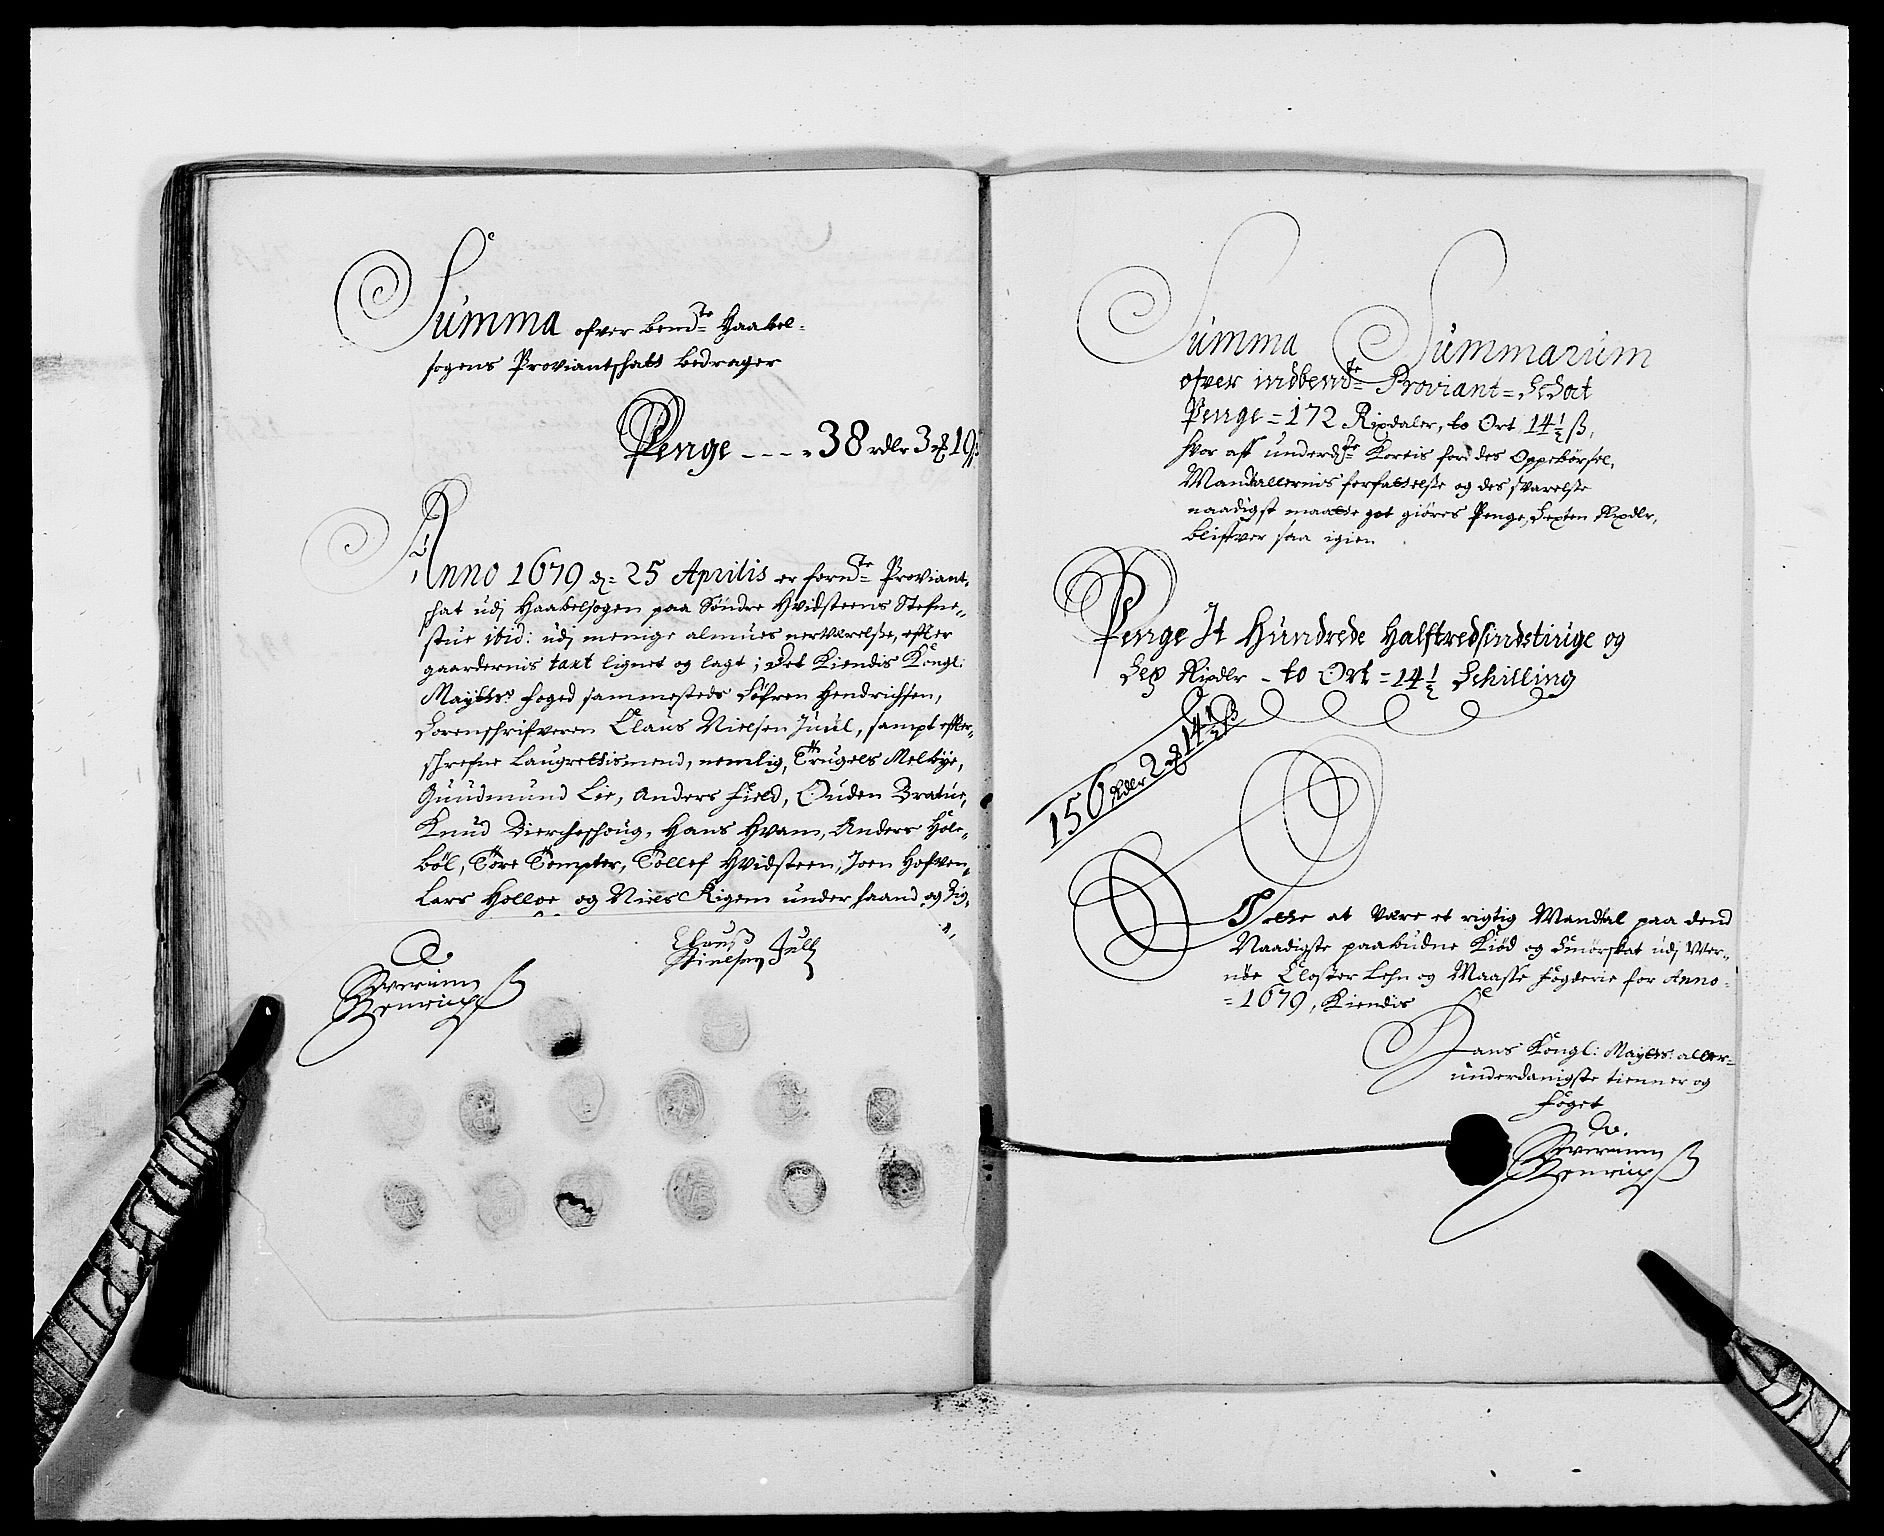 Summa ofver bend.te Haabel-
sogens Proviantskatt bedrager
Penge - - - - 38 rdlr 3 ort 19 ß
Anno 1679 d: 25 Aprilis er forn.te Proviant-
skat udj Haabelsogen paa Søndre Hvidsteens Stefne-
stue ibid: udj menige almues nerværelsse, efter
gaardernis taxt lignet og lagt; Det Kiendis Kongl:
Mayttz: foged sammesteds Søfren Hendrichsen,
Sorenschrifveren Claus Nielsen Juul, sampt efter-
schrefne Laugrettismend, nemlig, Trugels Melbye,
Guudmund Lie, Anders Field, Ouden Bratue,
Knud Biercheschoug, Hans Hvam, Anders Hole-
bøl, Tore Tompter, Tollef Hvidsteen, Joen Hofven,
Lars Holloe og Niels Rigem under haand og Sig-
Clauß Juell
Nielsen
Severinn
Henrichß
Summa Summarum
ofver indbend.te Proviant = Schat
Penge = 172 Rixdaler, to Ort 14 1/2 ß,
hvor aff underd.te Koreis for des Oppebørsel,
Mandtallernis forfattelsse og des svarelsse
naadigst maatte got giøres Penge, Sexten Rixdlr,
blifver saa igien
Penge It Hundrede Halftredsindstiuge og
Sex Rixdlr - to Ort = 14 1/2 Schilling
156 Rdlr 2 ort 14 1/2 ß
at være et rigtig Mandtal paa dend
Naadigste paabudne Kiød og Smørskat udj Ver-
nøe Closter Lehn og Maasse fogderie for Anno-
= 1679, Kiendis
Hans Kongl: Mayttz: aller-
underdanigste tienner og
foget
Severinn
Henrichß